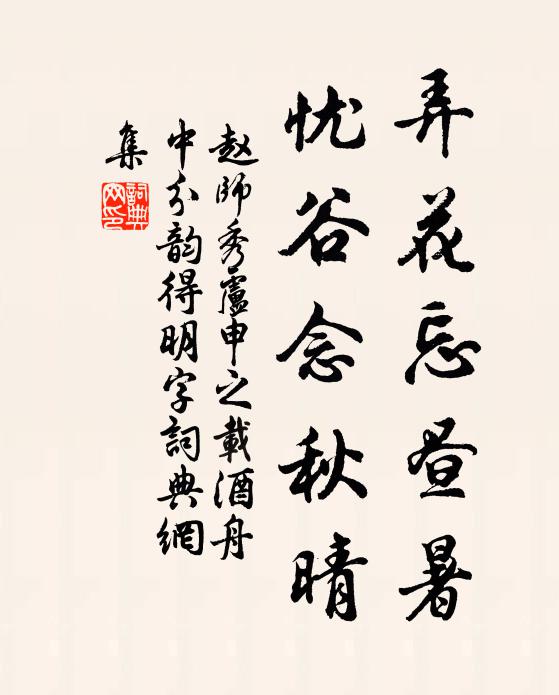 弄花忘昼暑
忧谷念秋晴
赵师秀蘆申之載酒舟
中分韵得明字詞典網
集
詞典网印